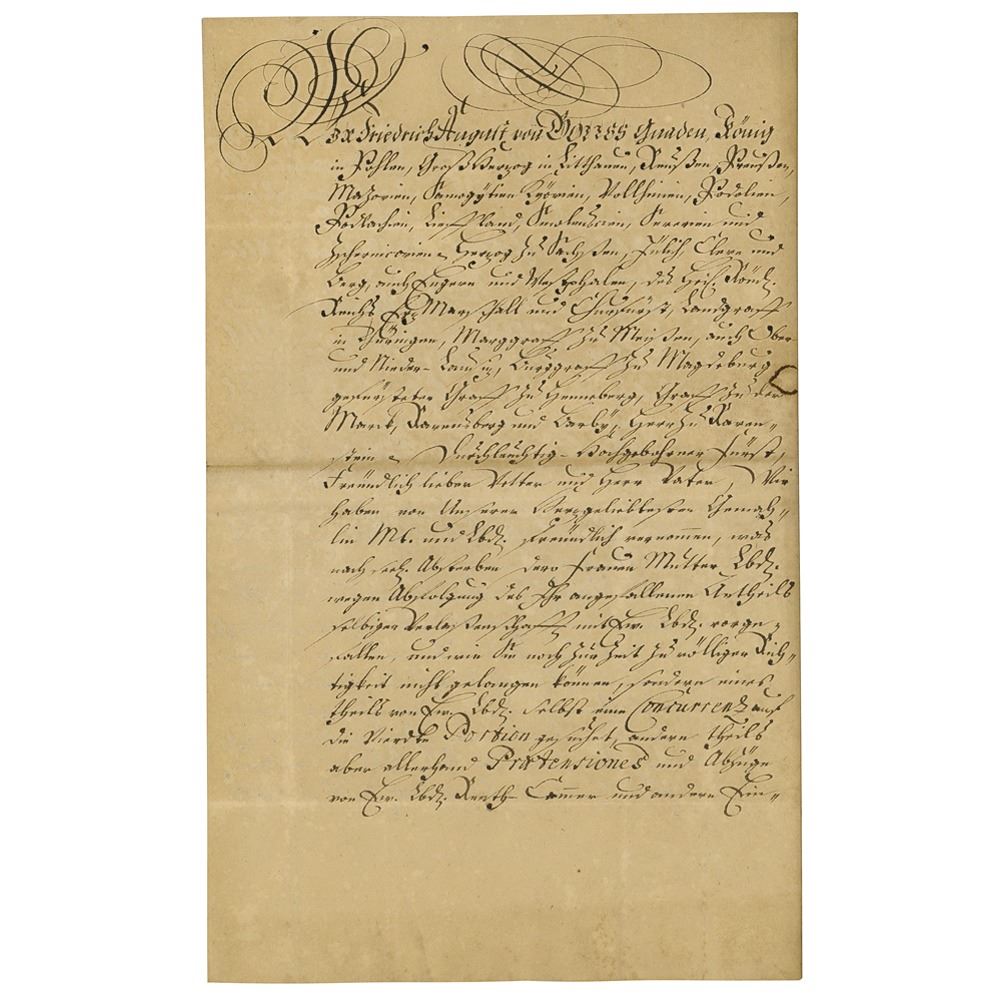 Wir Friedrich August von GOTTES Gnaden, König
in Pohlen, Groß Herzog in Litthauen, Reußen, Preußen,
Mazovien, Samogytien, Kyovien, Vollhinien, Podolien,
Podlachien, Liefland, Smolenscien, Severien und
Zschernicovien, Herzog zu Sachßen, Jülich, Cleve und
Berg, auch Engern und Westphalen, des Heil. Röm.
Reichs Erz Marschall und Churfürst, Landgraff
in Thüringen, Marggraff zu Meißen, auch Ober
und Nieder-Lausitz, Burggraff zu Magdeburg,
gefürsteter Graff zu Henneberg, Graff zu der
Marck, Ravensberg und Barby, Herr zu Raven-
stein Durchleuchtig-Hochgebohrner Fürst,
Freundlich lieber Vetter und Herr Vater, Wir
haben von Unserer Herzgeliebtesten Gemah-
lin Mt. und Lbd. freundlich vernommen, was
nach seel. Absterben dero Frauen Mutter Lbd.
wegen Abfolgung des Ihr angefallenen Antheils
selbiger Verlaßenschafft mit Ew. Lbd. vorge-
fallen, und wie Sie noch zur Zeit zu völliger Rich-
tigkeit nicht gelangen können, sondern eines
theils von Ew. Lbd. selbst eine Concurrenz auf
die Vierdte Portion gesuchet, andern theils
aber allerhand Prætensiones und Abzüge
von Ew. Lbd. Renth-Cammer und andern Ein-